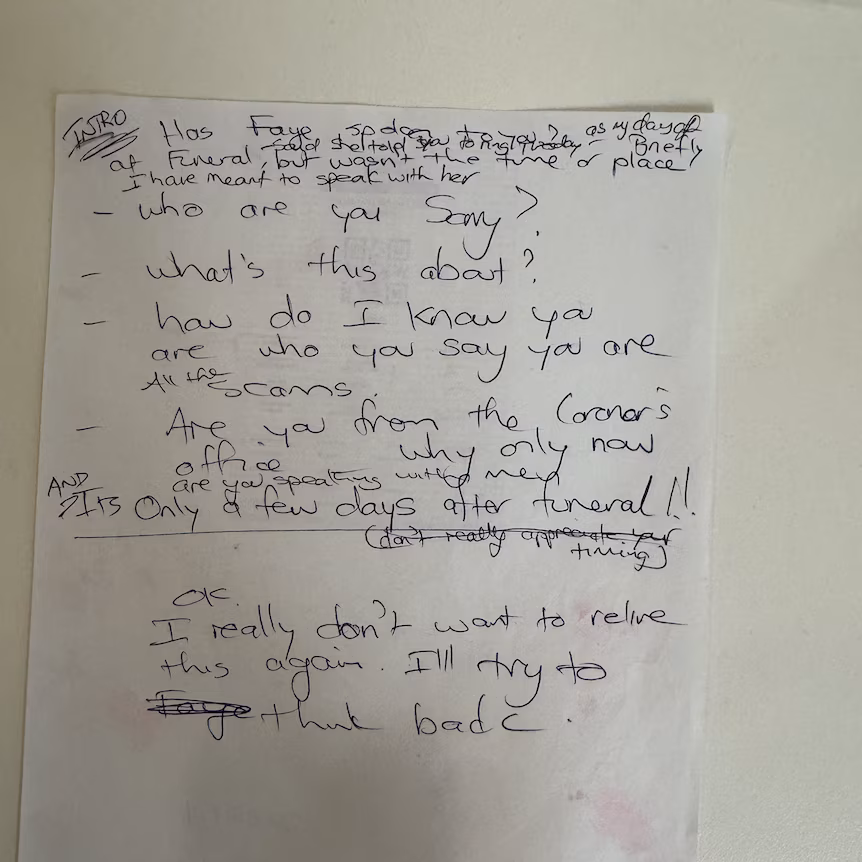 INTRO
Has Faye spoken to you? as my day of
said she told you to ring Briefly
at Funeral, but wasn't the time or place
I have meant to speak with her
- who are you Sorry?
- what's this about?
- how do I know you
are who you say you are
All the scams.
- Are you from the Coroner's
office why only now
are you speaking with me
AND
Its Only a few days after funeral!!
(don't really appreciate your
timing)
OK.
I really don't want to relive
this again. I'll try to
Faye think back.